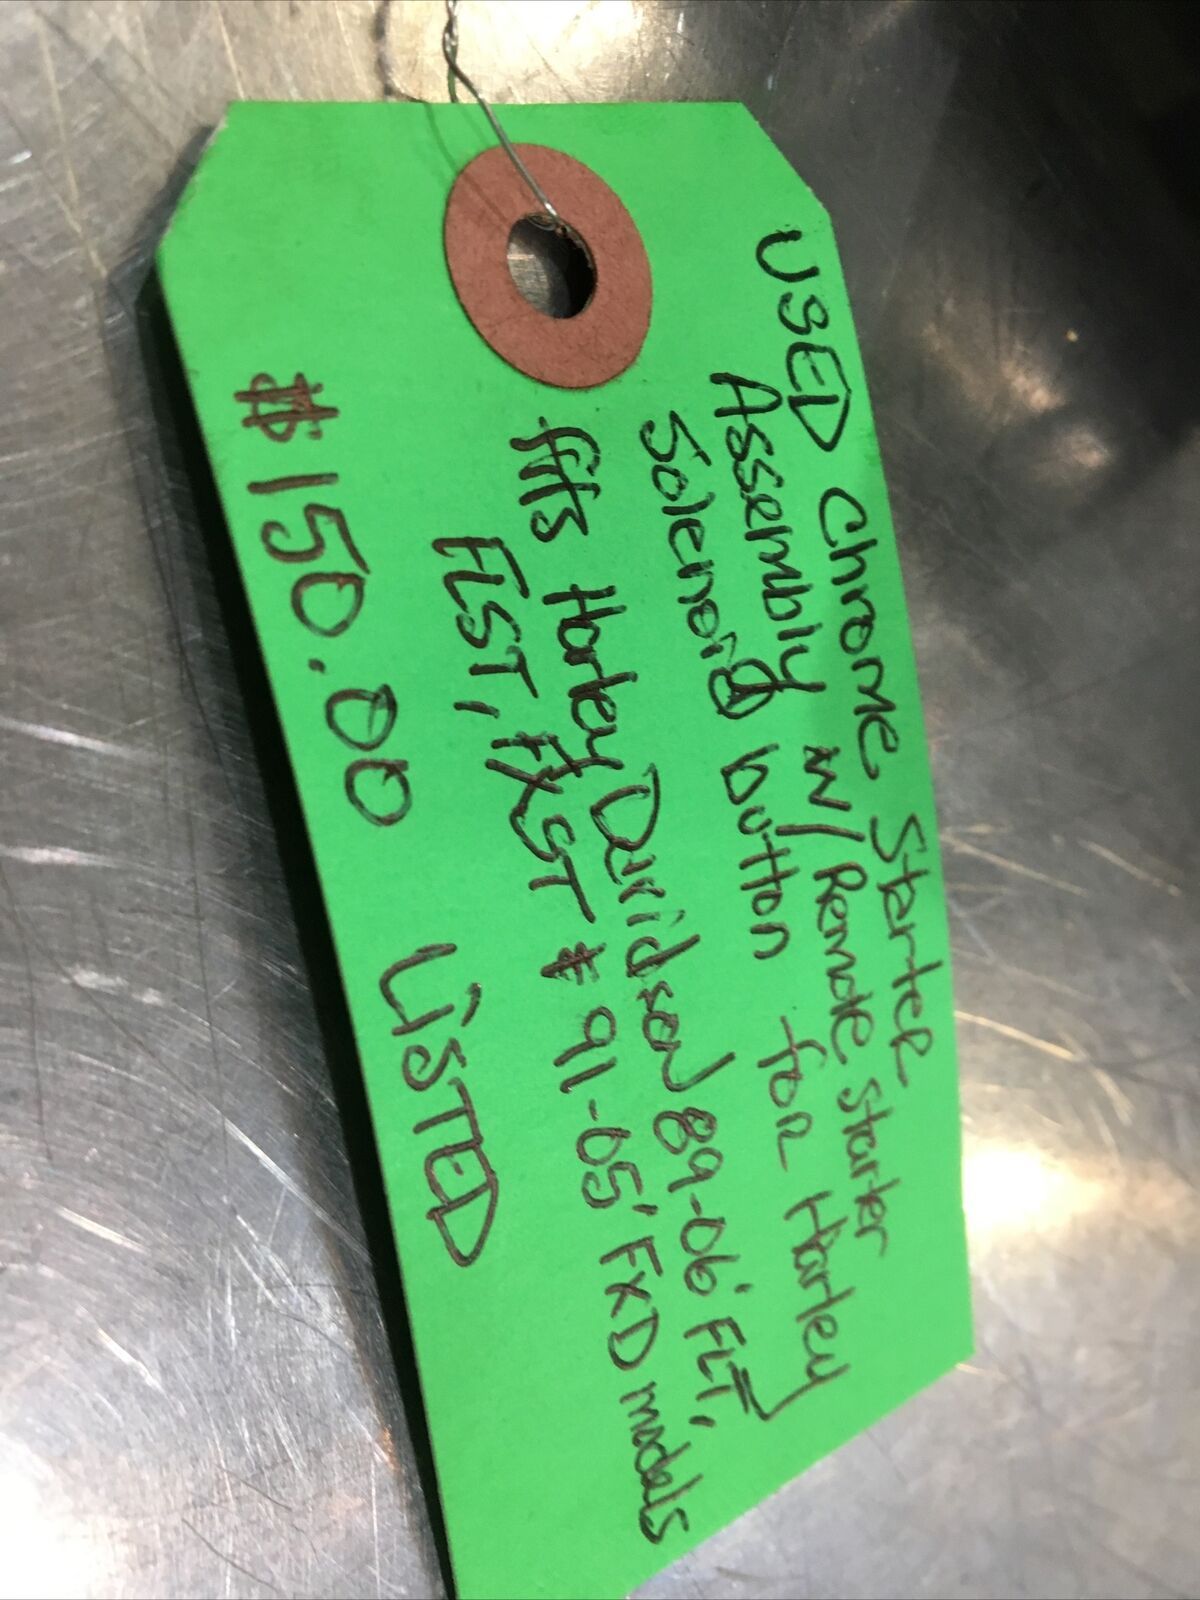 USED Chrome Starter
Assembly w/ Remote Starter
Solenoid button for Harley
fits Harley Davidson 89-06' FLT,
FLST, FXST # 91-05' FXD models
$150.00 LISTED